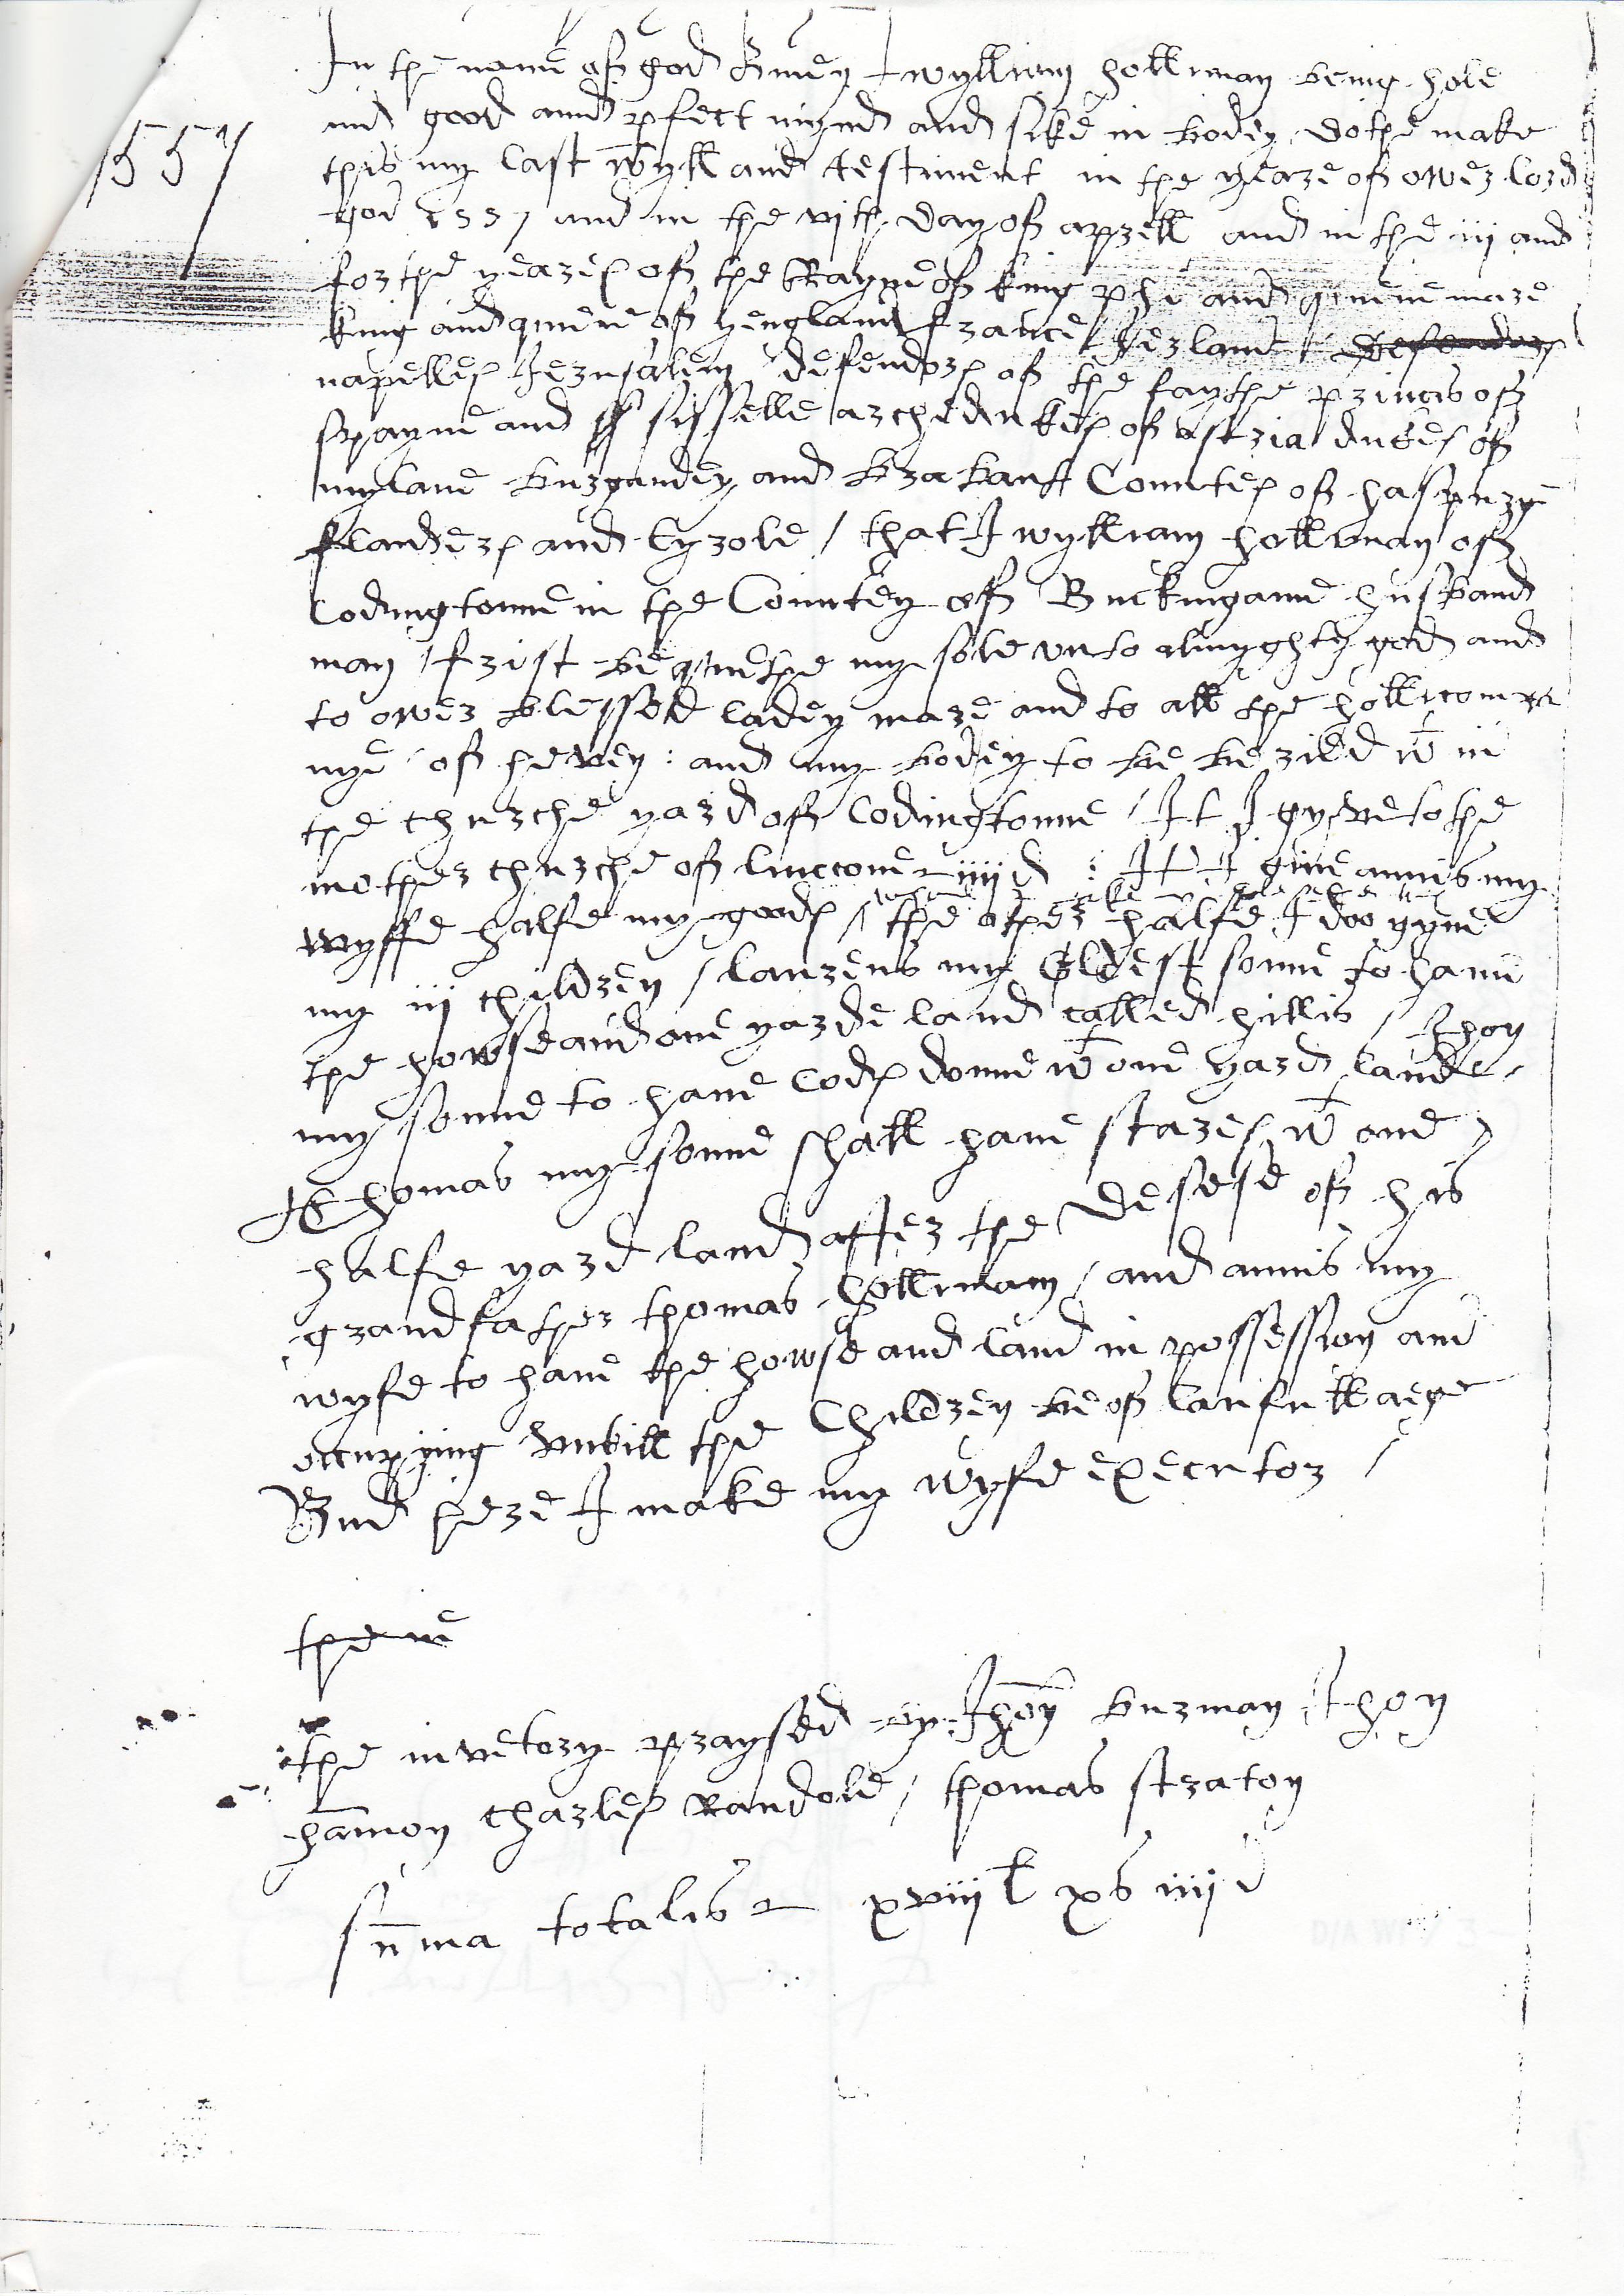 1557
In the name of god Amen I wylliam holliman being hole
in good annd pfect mynd and sike in bodey dothe make
this my last wyll and testiment in the yeare of ower lord
god 1557 and in the vith day of aprell and in the iij and
forthe yeares of the Rayne of king phi and quene mare
king and quene of yengland france Ierland defenders
napelles Ierusalem defendors of the faythe princis of
spayne and sisselle archedukes of ostria dukes of
mylane burgundey and brabant Countes of haspurge
flanders and tyrole / that I wylliam holliman of
Codingtonne in the Countey of Buckingame husband
man / frist bequethe my sole unto almyghty god and
to ower blessed ladey mare and to all the holli compa
nye of heven : and my bodey to be beried wt in
the churche yard of Codingtonne / It I gyve to the
mother churche of linccone iiij d : It I give annis my
wyffe halfe my goods / the other halfe I doo gyve
my iij children / laurens my Eldest sonne to have
the howse and one yarde land called hillis / Ihon
my sonne to have Cods donne wt one yard lande /
Thomas my sonne shall have stares wt one
halfe yard land after the desese of his
grandfather thomas holliman / and annis my
wyfe to have the howse and land in possession and
occupying untill the Children be of laufull aege
And here I make my wyfe executor /
the in
the invetory praysed by Ihon burman Ihon
hamon charles Randole / thomas straton
suma totalis xviij l xs iiij d